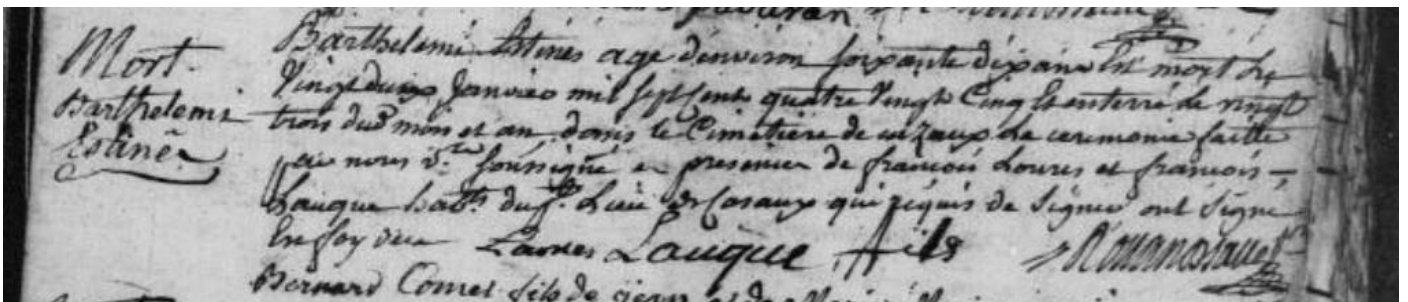 Mort
Barthelemi
Estinés
Barthelemi Estinés age denviron soixante dix ans Est mort le
vingt deux Janvier mil sept Cent quatre vingt Cinq Est enterré le vingt
trois dud mois et an dans le Cimetière de cazaux la ceremonie faitte
par nous v.re soussigné en presence de francois Loures et francois
Lauque hab.ts du p.t Lieu de Casaux qui requis de signer ont signé
En foy de ce Loures Lauque fils
Bernard Comet fils de jean et de